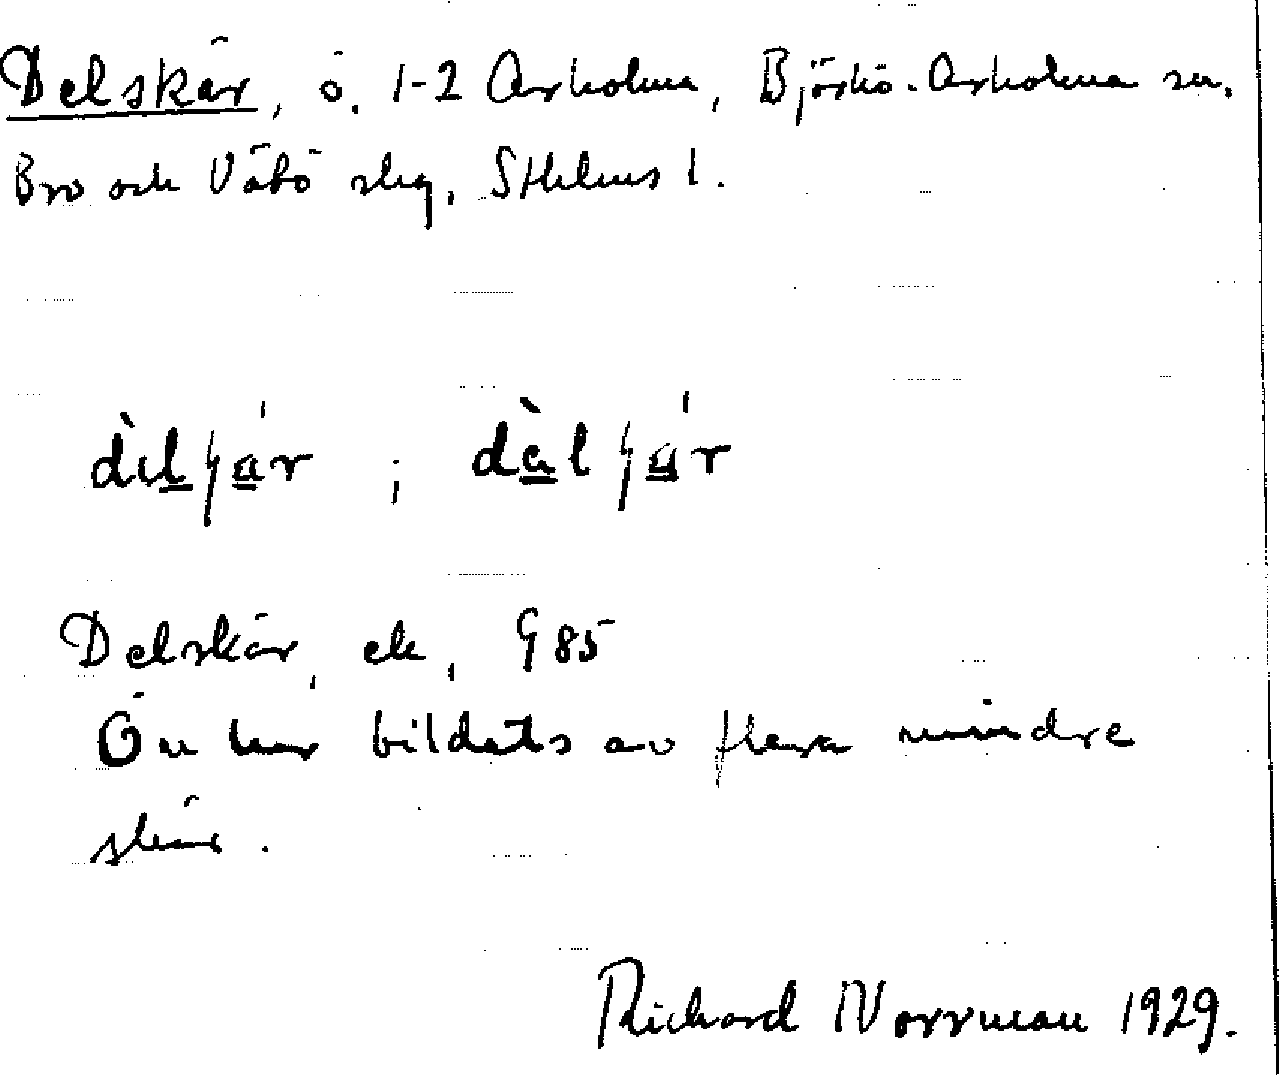 Delskär, ö. 1-2 Arholma, Björkö-Arholma sn.
Bro och Vätö slg, Sthlms l.
Delskär, ek, G 85
Ön har bildats av flera mindre
skär.
Richard Norrman 1929.